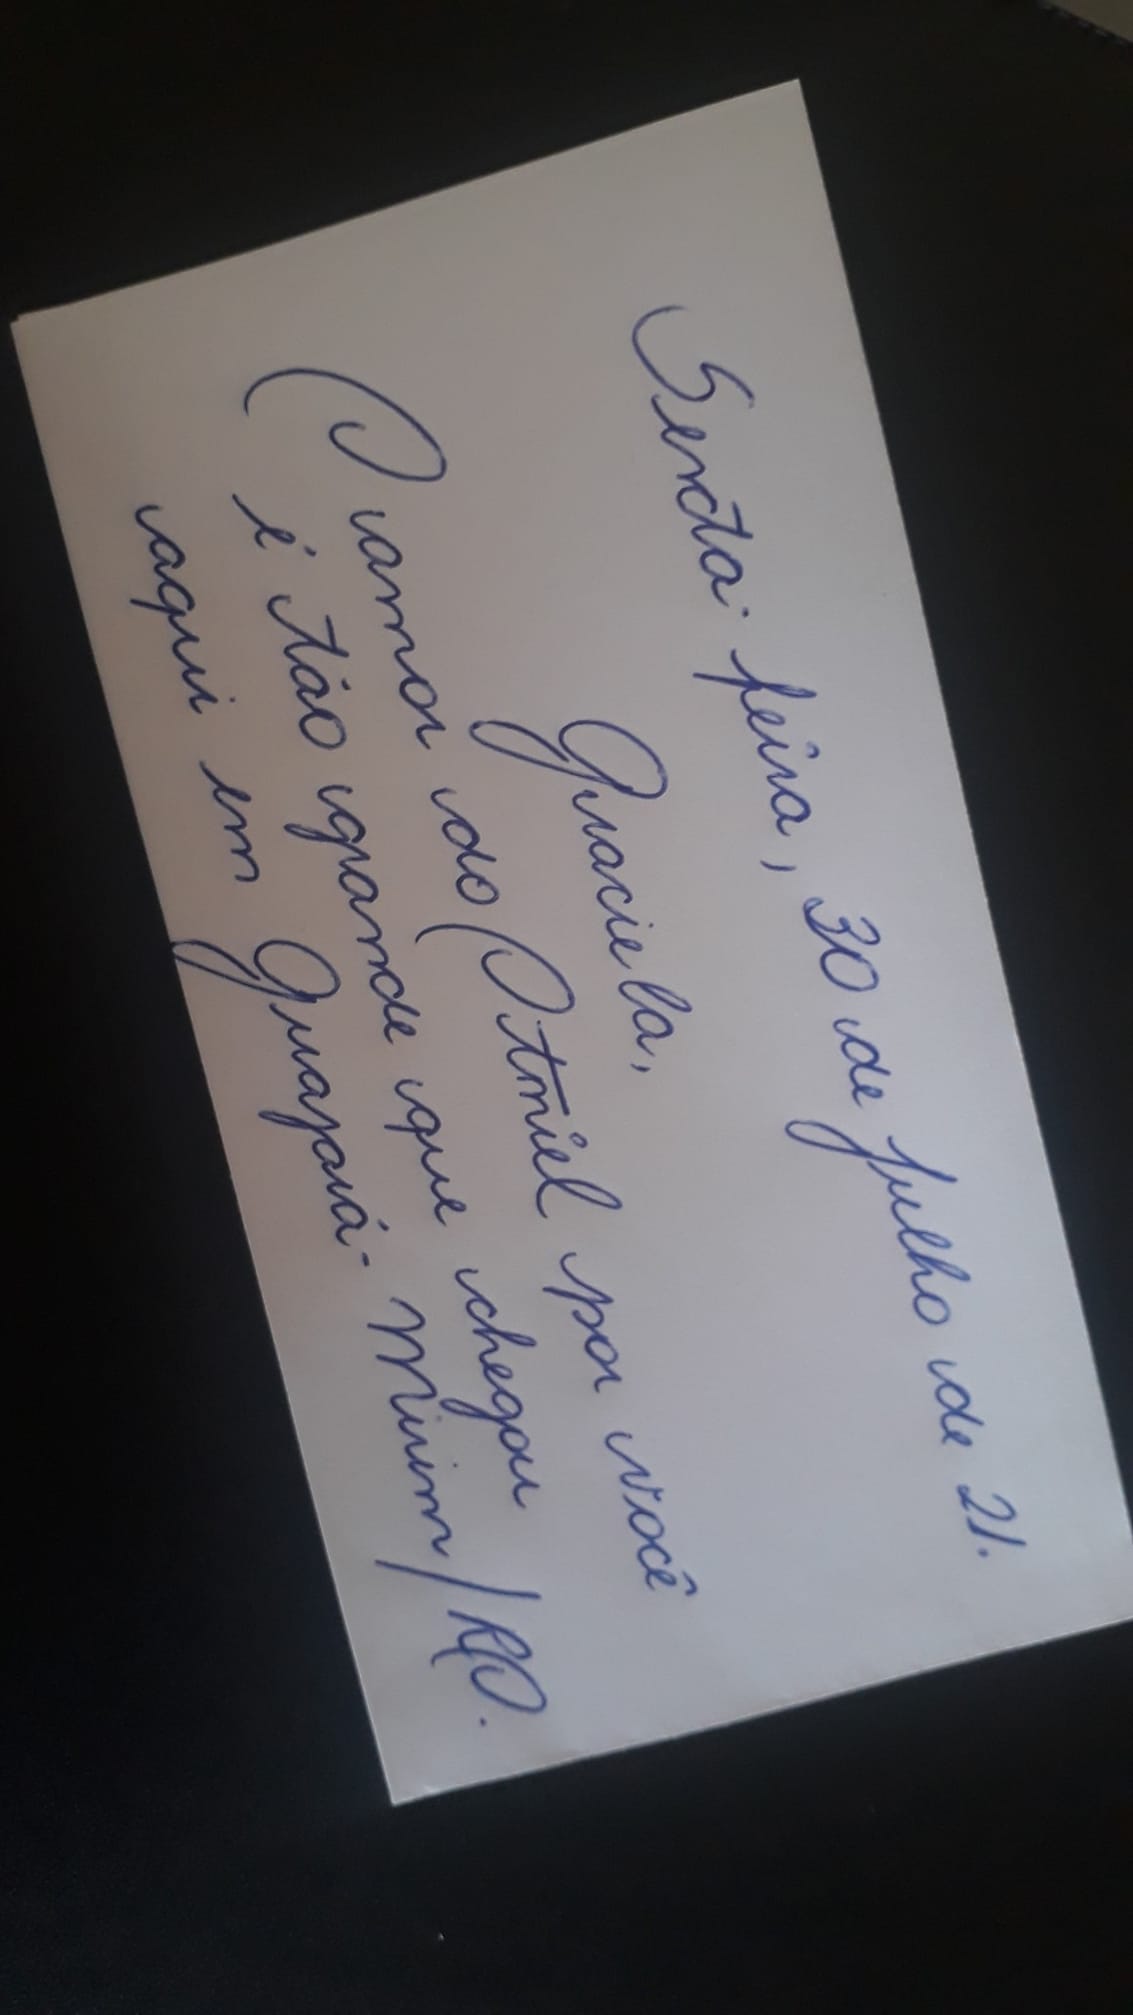 Sexta-feira, 30 de julho de 21.
Graciela,
O amor do Otniel por você
é tão grande que chegou
aqui em Guajará-Mirim/RO.